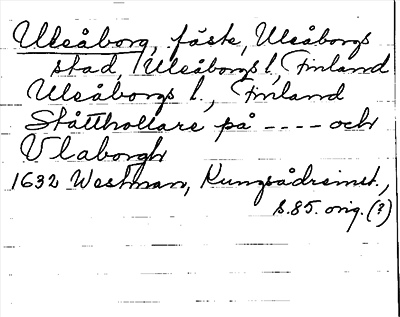 Uleåborg, fäste, Uleåborgs
stad, Uleåborgs l., Finland
Uleåborgs l., Finland
Ståtthollare på ---- och
Vlaborgh
1632 Westman, Kungsådreinst.,
s. 85. orig. (?)